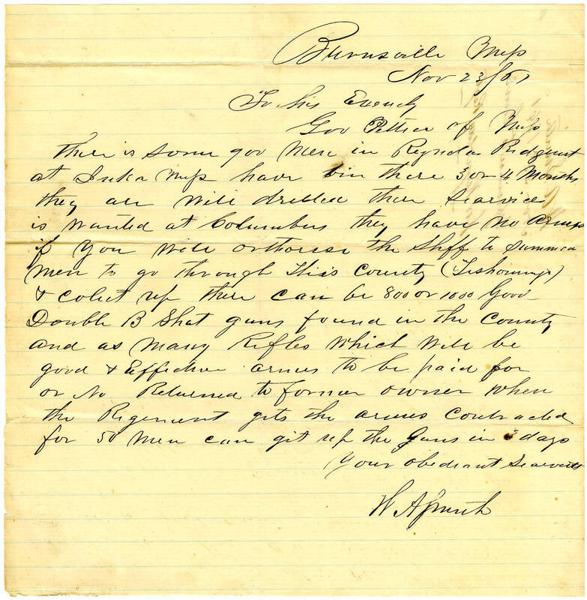 Burnsville Miss
Nov 23/61
To his Excency
Gov Pettus of Miss
There is some 900 Men in Reynolds Redgment
at Iuka Miss have bin there 3 or 4 Months
they are well drelled there Searvice
is wanted at Columbus they have no Armes
if you will orthorise the Shff to Summon
Men to go through this County (Tishomingo)
& colect up there can be 800 or 1000 Good
Double B Shot guns found in the County
and as Many Rifles which will be
good & Effective armes to be paid for
or No Returned to former owner when
the Regement gits the armes contracted
for 50 Men can git up the Guns in 3 days
Your obediant Searvent
W A